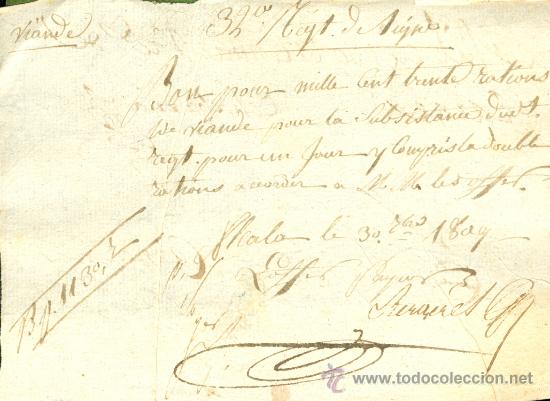 viande
32e Régt. de Ligne
Bon pour mille cent trente rations
de viande pour la Subsistance dudt.
régt. pour un Jour y Compris la double
rations accorder a M.M. les offers.
le 30. 1809
Bp. 1130. r
L'offer Payeur
www.todocoleccion.net